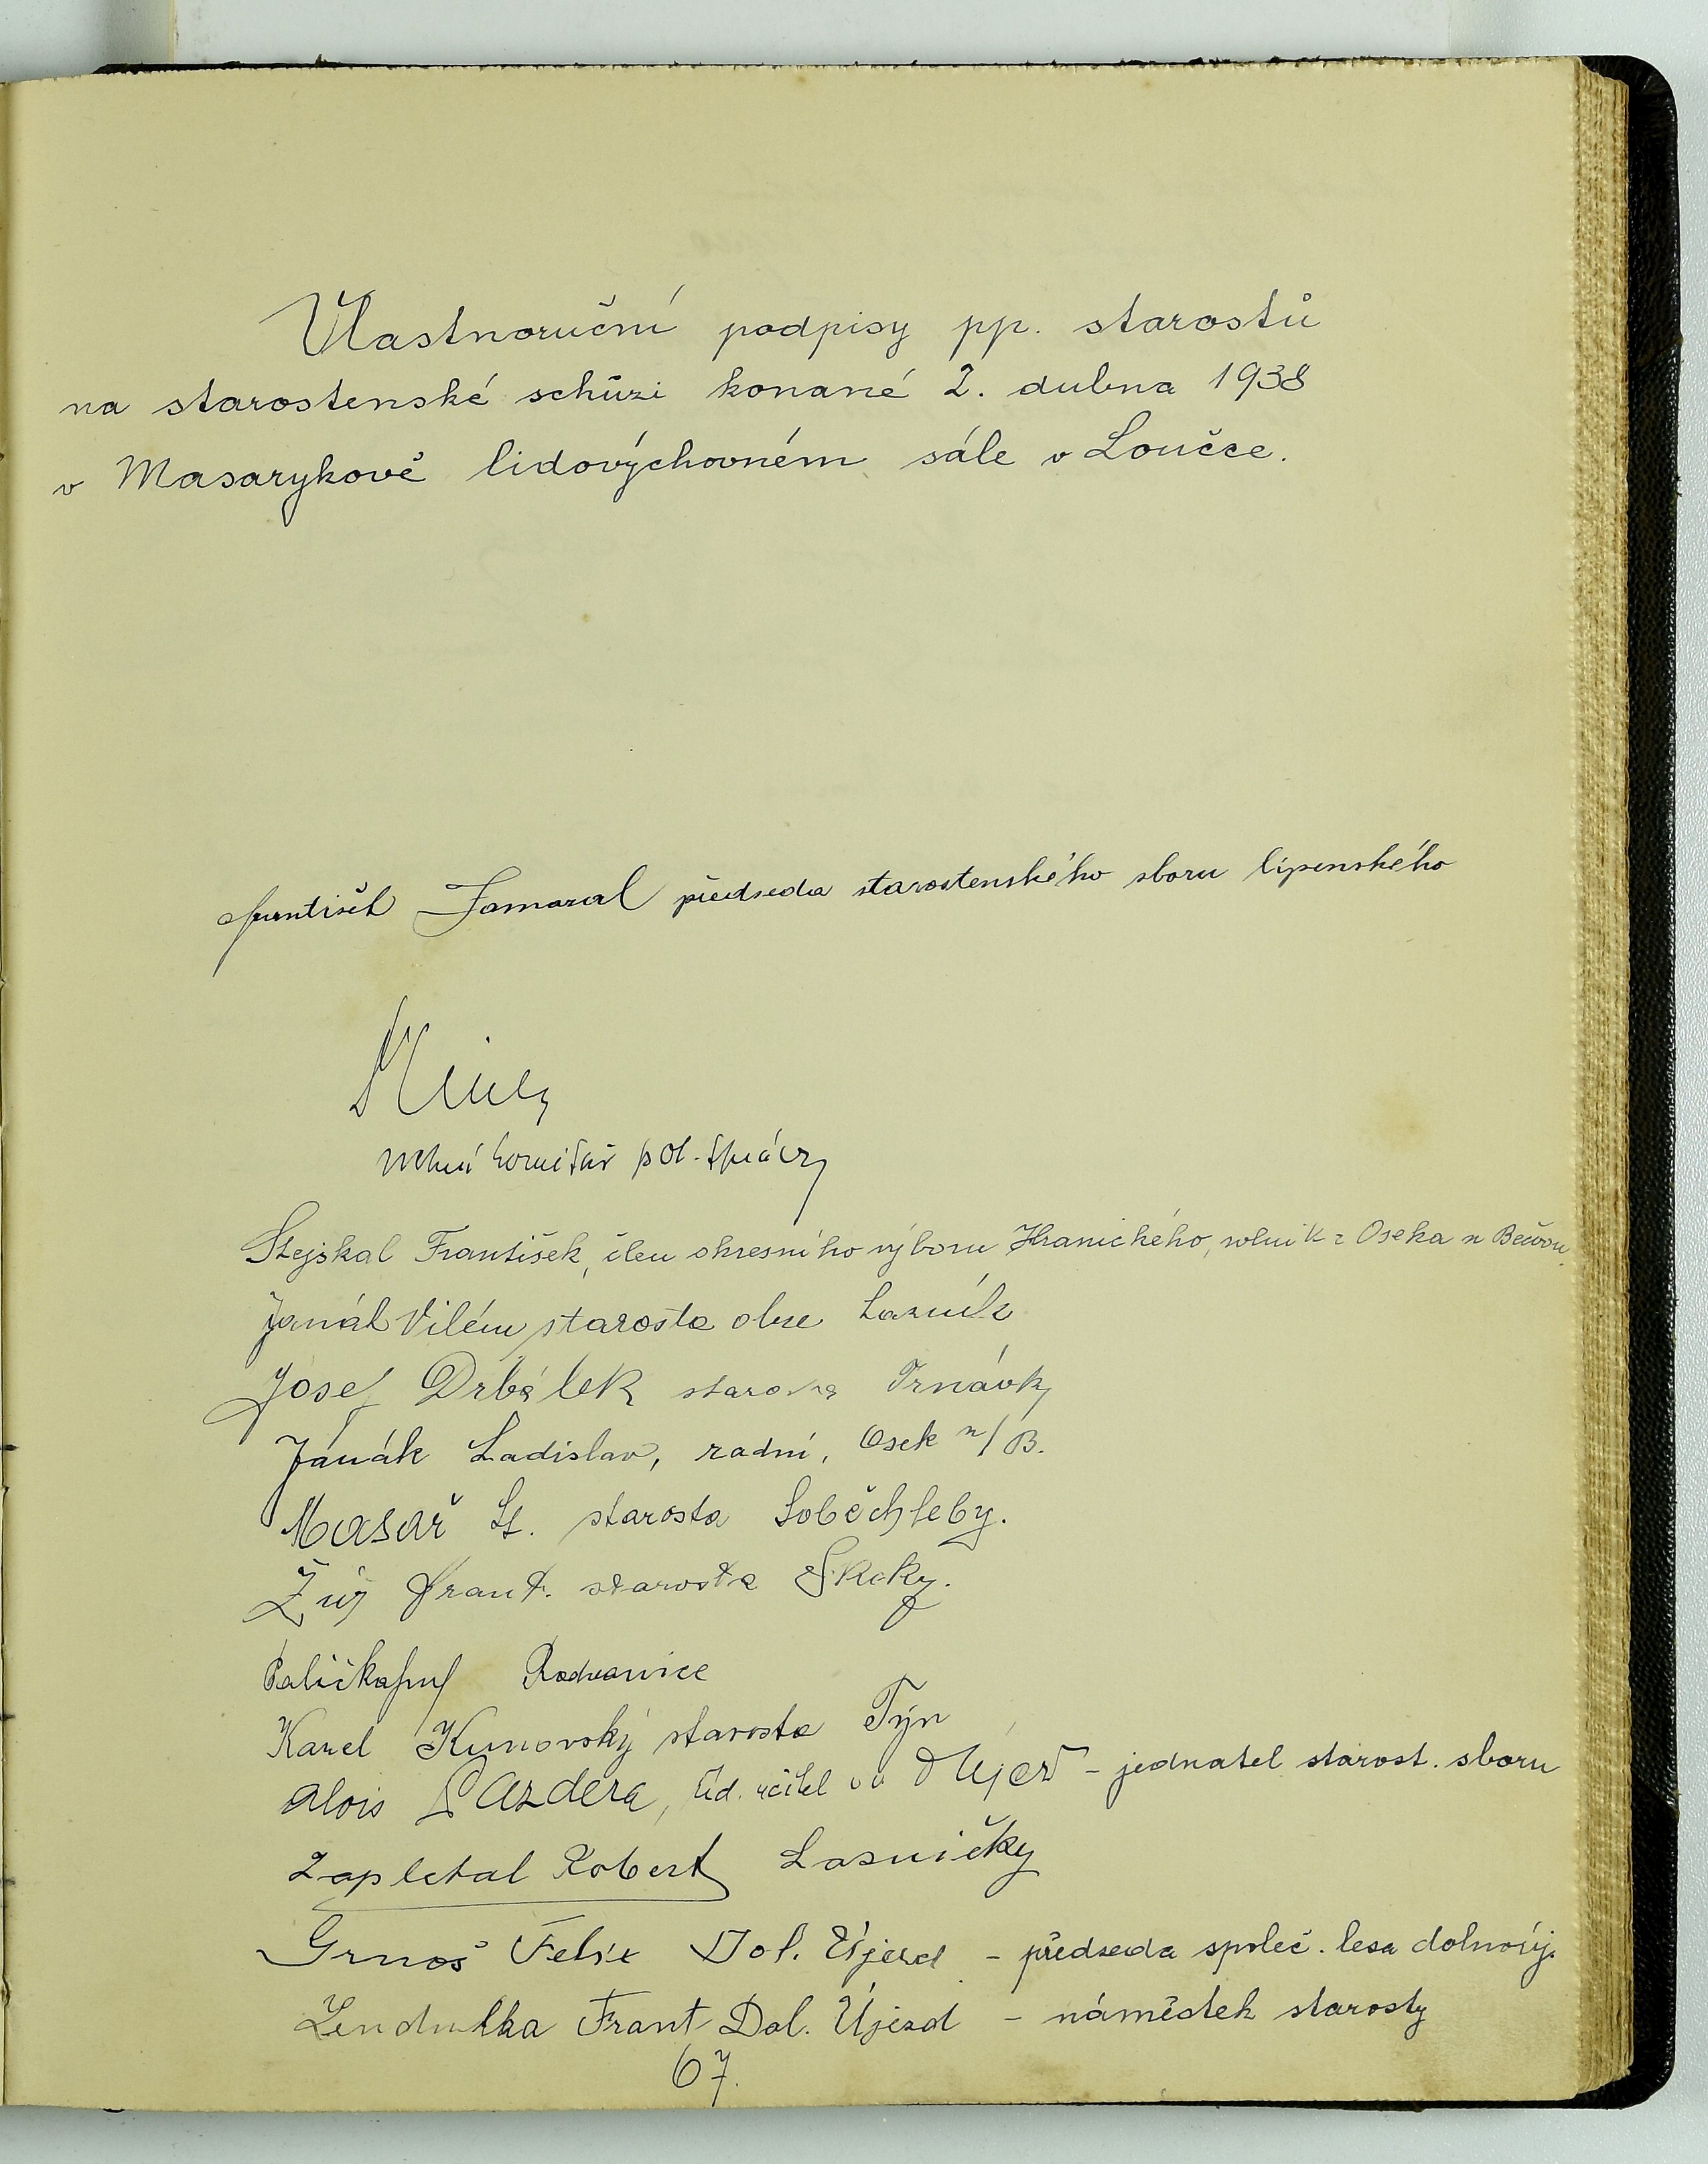 Vlastnoruční podpisy pp. starostů
na starostenské schůzi konané 2. dubna 1938
v Masarykově lidovýchovném sále v Loučce.
František předseda starostenského sboru lipenského
komisař pol. správy
Stejskal František, člen okresního výboru Hranického, rolník z Oseka n Bečvou.
Janák Vilém starosta obce Lazník
Josef Drbálek starosta Trnávky
Janák Ladislav, radní, Osek n/B.
Masař starosta Soběchleby.
Frant. starosta Skoky.
Palička Radvanice
Karel Kunovský starosta Týn
Alois Lazdera, říd. učitel - jednatel starost. sboru
Zapletal Robert Lazničky
Grnoš Felix Dol. Újezd - předseda společ. lesa dolnoúj.
Frant Dol. Újezd - náměstek starosty
67.